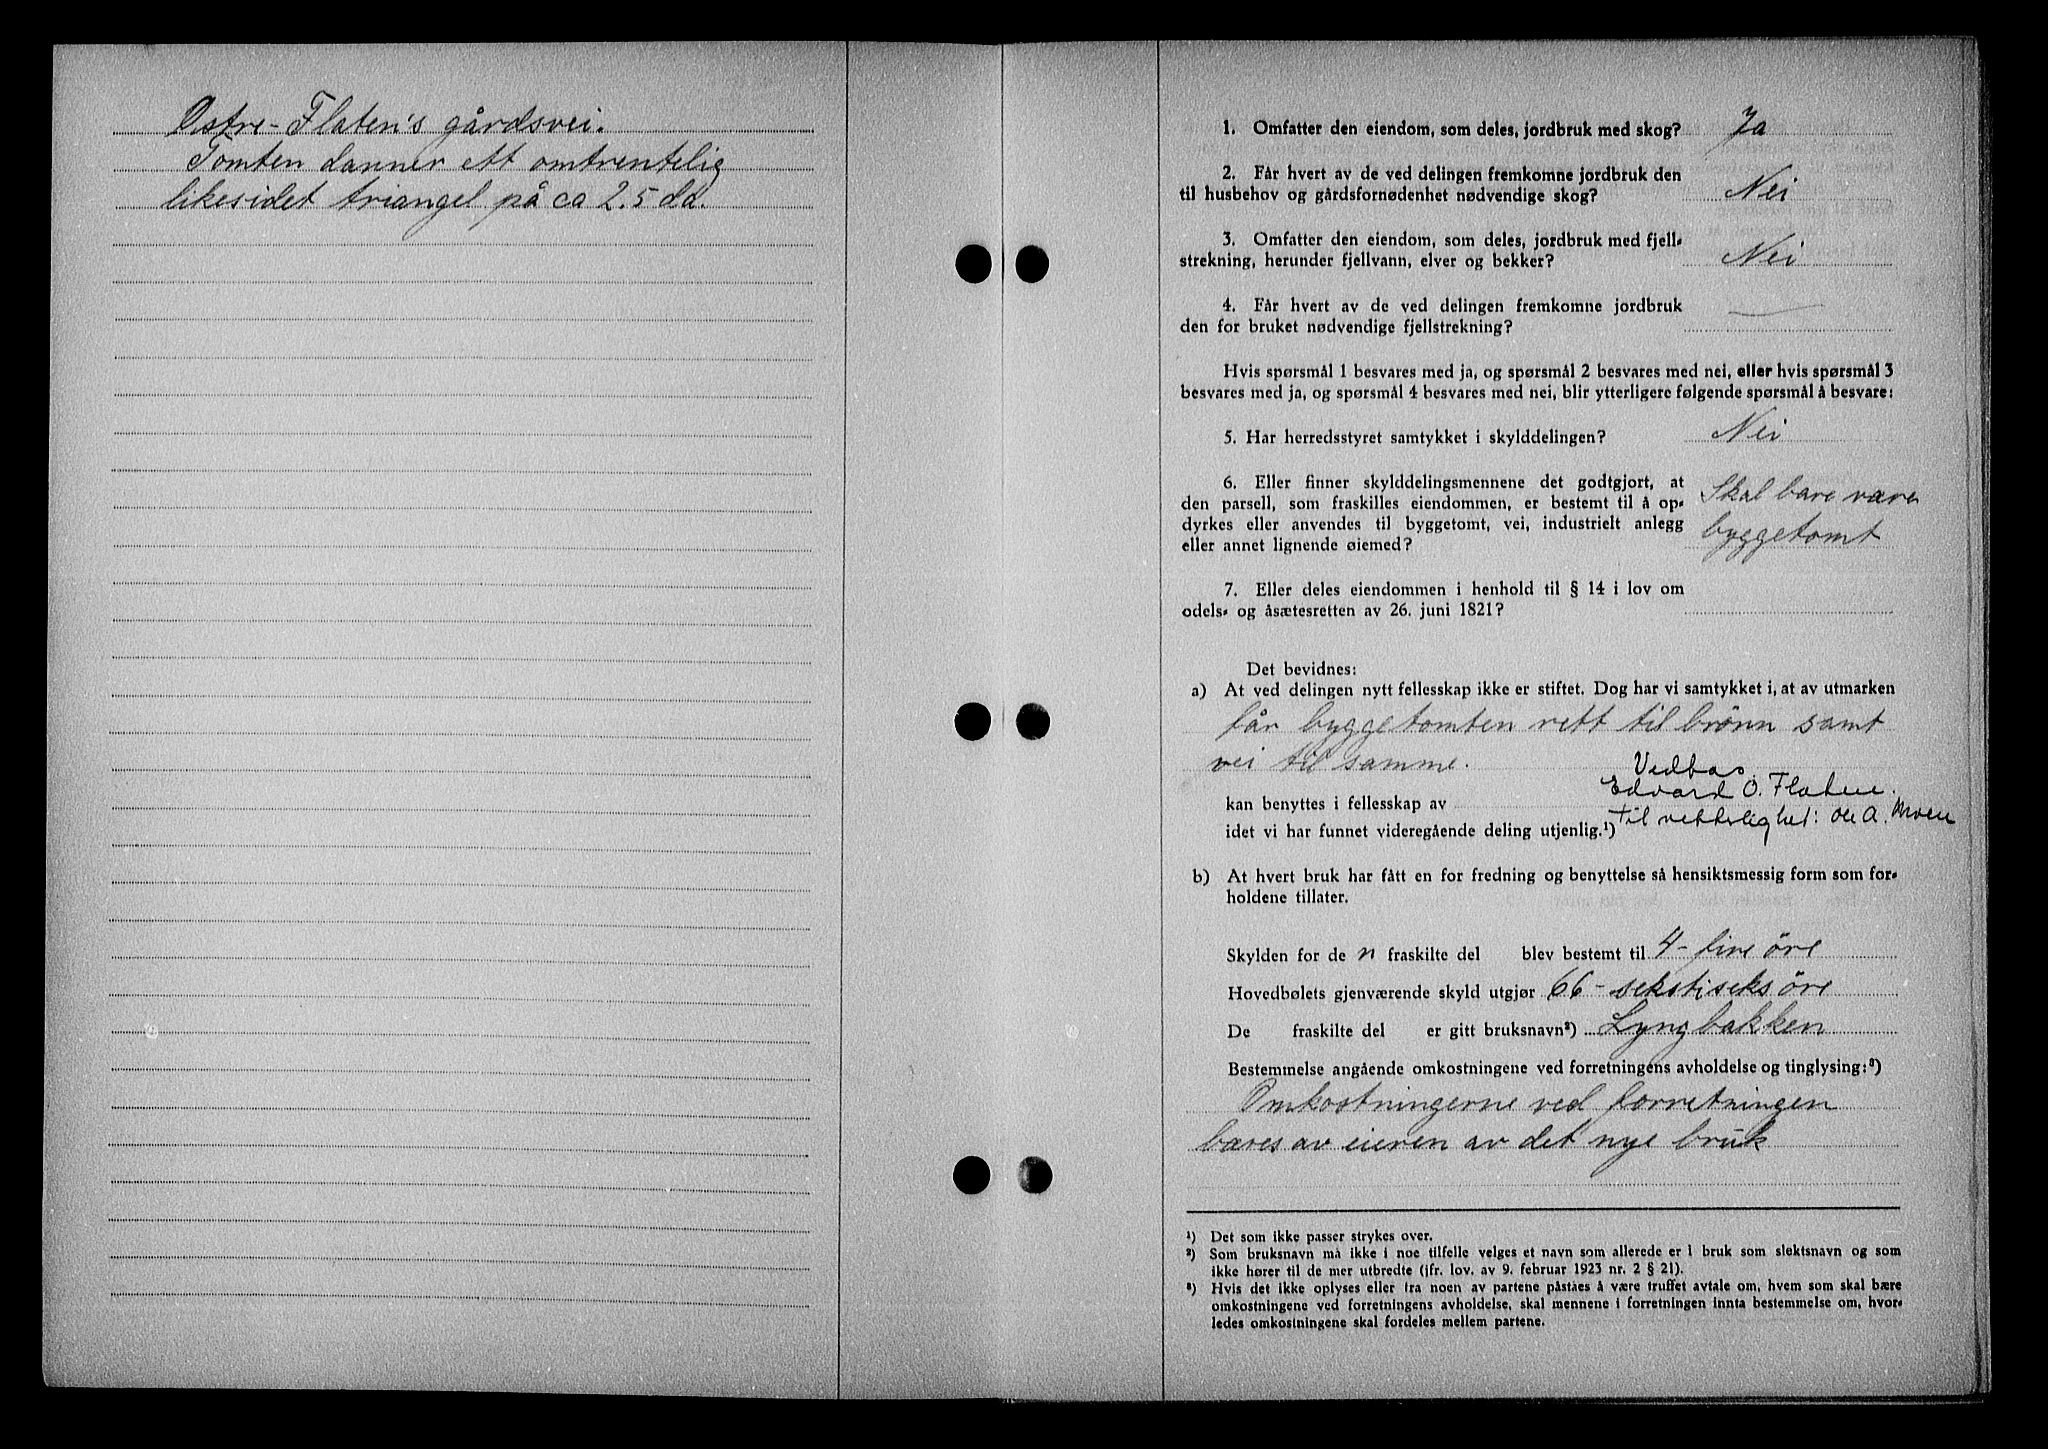 Östre-Flaten's gårdsvei.
Tomten danner ett omtrentelig
likesidet triangel på ca 2.5 da.
1. Omfatter den eiendom, som deles, jordbruk med skog? Ja
2. Får hvert av de ved delingen fremkomne jordbruk den
til husbehov og gårdsfornødenhet nødvendige skog? Nei
3. Omfatter den eiendom, som deles, jordbruk med fjell-
strekning, herunder fjellvann, elver og bekker? Nei
4. Får hvert av de ved delingen fremkomne jordbruk
den for bruket nødvendige fjellstrekning? —
Hvis spørsmål 1 besvares med ja, og spørsmål 2 besvares med nei, eller hvis spørsmål 3
besvares med ja, og spørsmål 4 besvares med nei, blir ytterligere følgende spørsmål å besvare:
5. Har herredsstyret samtykket i skylddelingen? Nei
6. Eller finner skylddelingsmennene det godtgjort, at
den parsell, som fraskilles eiendommen, er bestemt til å op- Skal bare være
dyrkes eller anvendes til byggetomt, vei, industrielt anlegg byggetomt
eller annet lignende øiemed?
7. Eller deles eiendommen i henhold til § 14 i lov om
odels- og åsætesretten av 26. juni 1821?
Det bevidnes:
a) At ved delingen nytt fellesskap ikke er stiftet. Dog har vi samtykket i, at av utmarken
får byggetomten rett til brönn samt
vei til samme. Vedtas.
Edvard O. Flaten.
kan benyttes i fellesskap av
Til vitterlighet: Ole A. Moen
idet vi har funnet videregående deling utjenlig.¹)
b) At hvert bruk har fått en for fredning og benyttelse så hensiktsmessig form som for-
holdene tillater.
Skylden for de n fraskilte del blev bestemt til 4 - fire öre
Hovedbølets gjenværende skyld utgjør 66 - sekstiseks öre
De fraskilte del er gitt bruksnavn²) Lyngbakken
Bestemmelse angående omkostningene ved forretningens avholdelse og tinglysing:³)
Omkostningerne ved forretningen
bæres av eieren av det nye bruk
¹) Det som ikke passer strykes over.
²) Som bruksnavn må ikke i noe tilfelle velges et navn som allerede er i bruk som slektsnavn og som
ikke hører til de mer utbredte (jfr. lov. av 9. februar 1923 nr. 2 § 21).
³) Hvis det ikke oplyses eller fra noen av partene påstås å være truffet avtale om, hvem som skal bære
omkostningene ved forretningens avholdelse, skal mennene i forretningen innta bestemmelse om, hvor-
ledes omkostningene skal fordeles mellem partene.